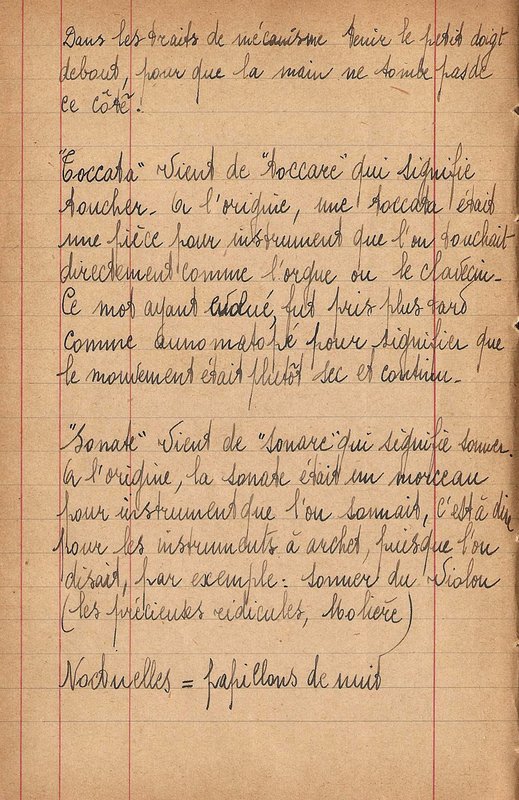 Dans les traits de mécanisme tenir le petit doigt
debout, pour que la main ne tombe pas de
ce côté.
"Toccata" vient de "toccare" qui signifie
toucher. A l'origine, une toccata était
une pièce pour instrument que l'on touchait
directement comme l'orgue ou le clavecin.
Ce mot ayant évolué, fut pris plus tard
comme onnomatopé pour signifier que
le mouvement était plutôt sec et continu.
"Sonate" vient de "sonare" qui signifie sonner.
A l'origine, la sonate était un morceau
pour instrument que l'on sonnait, c'est à dire
pour les instruments à archet, puisque l'on
disait, par exemple: sonner du violon
(les précieuses ridicules, Molière)
Noctuelles = papillons de nuit